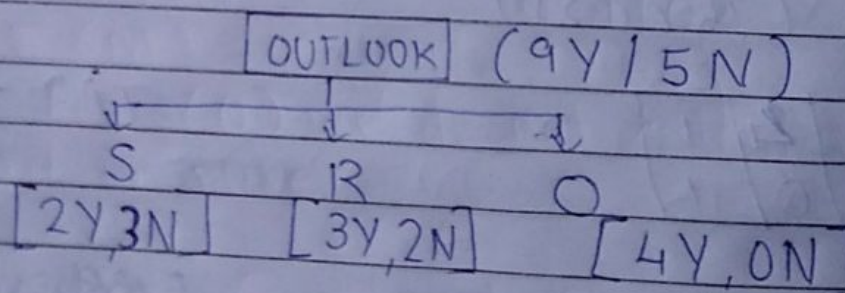 OUTLOOK (9Y/5N)
S R O
[2Y,3N] [3Y,2N] [4Y,0N